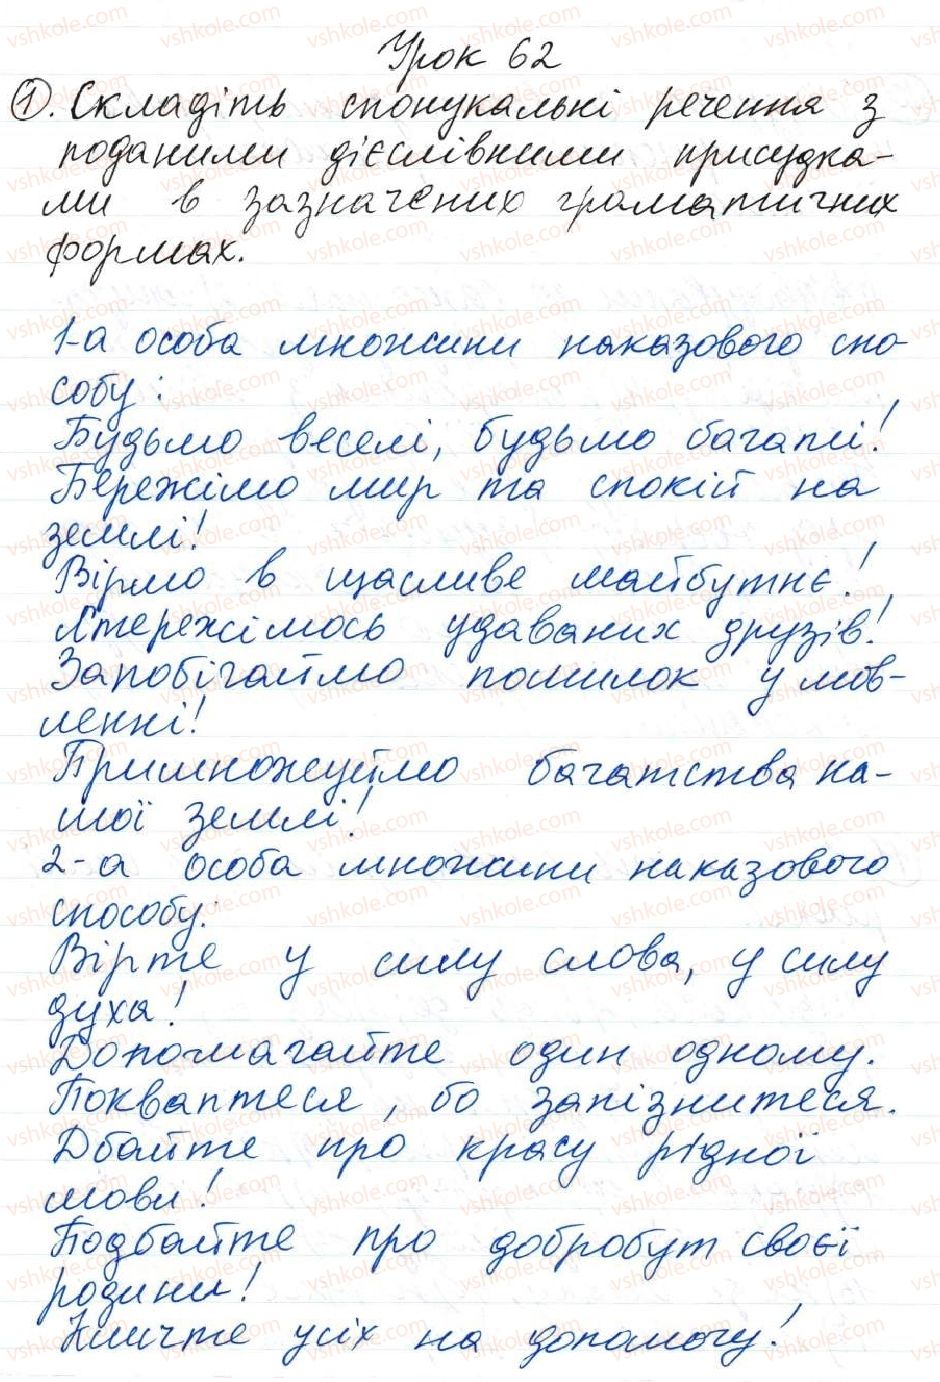 Урок 62
1. Складіть спонукальні речення з
поданими дієслівними присудка-
ми в зазначених граматичних
формах.
1-а особа множини наказового спо-
собу:
Будьмо веселі, будьмо багаті!
Бережімо мир та спокій на
землі!
Вірмо в щасливе майбутнє!
Стережімось удаваних друзів!
Запобігаймо помилок у мов-
ленні!
Примножуймо багатства на-
шої землі!
2-а особа множини наказового
способу:
Вірте у силу слова, у силу
духа!
Допомагайте один одному.
Покваптеся, бо запізнитеся.
Дбайте про красу рідної
мови!
Подбайте про добробут своєї
родини!
Кличте усіх на допомогу!
vshkole.com